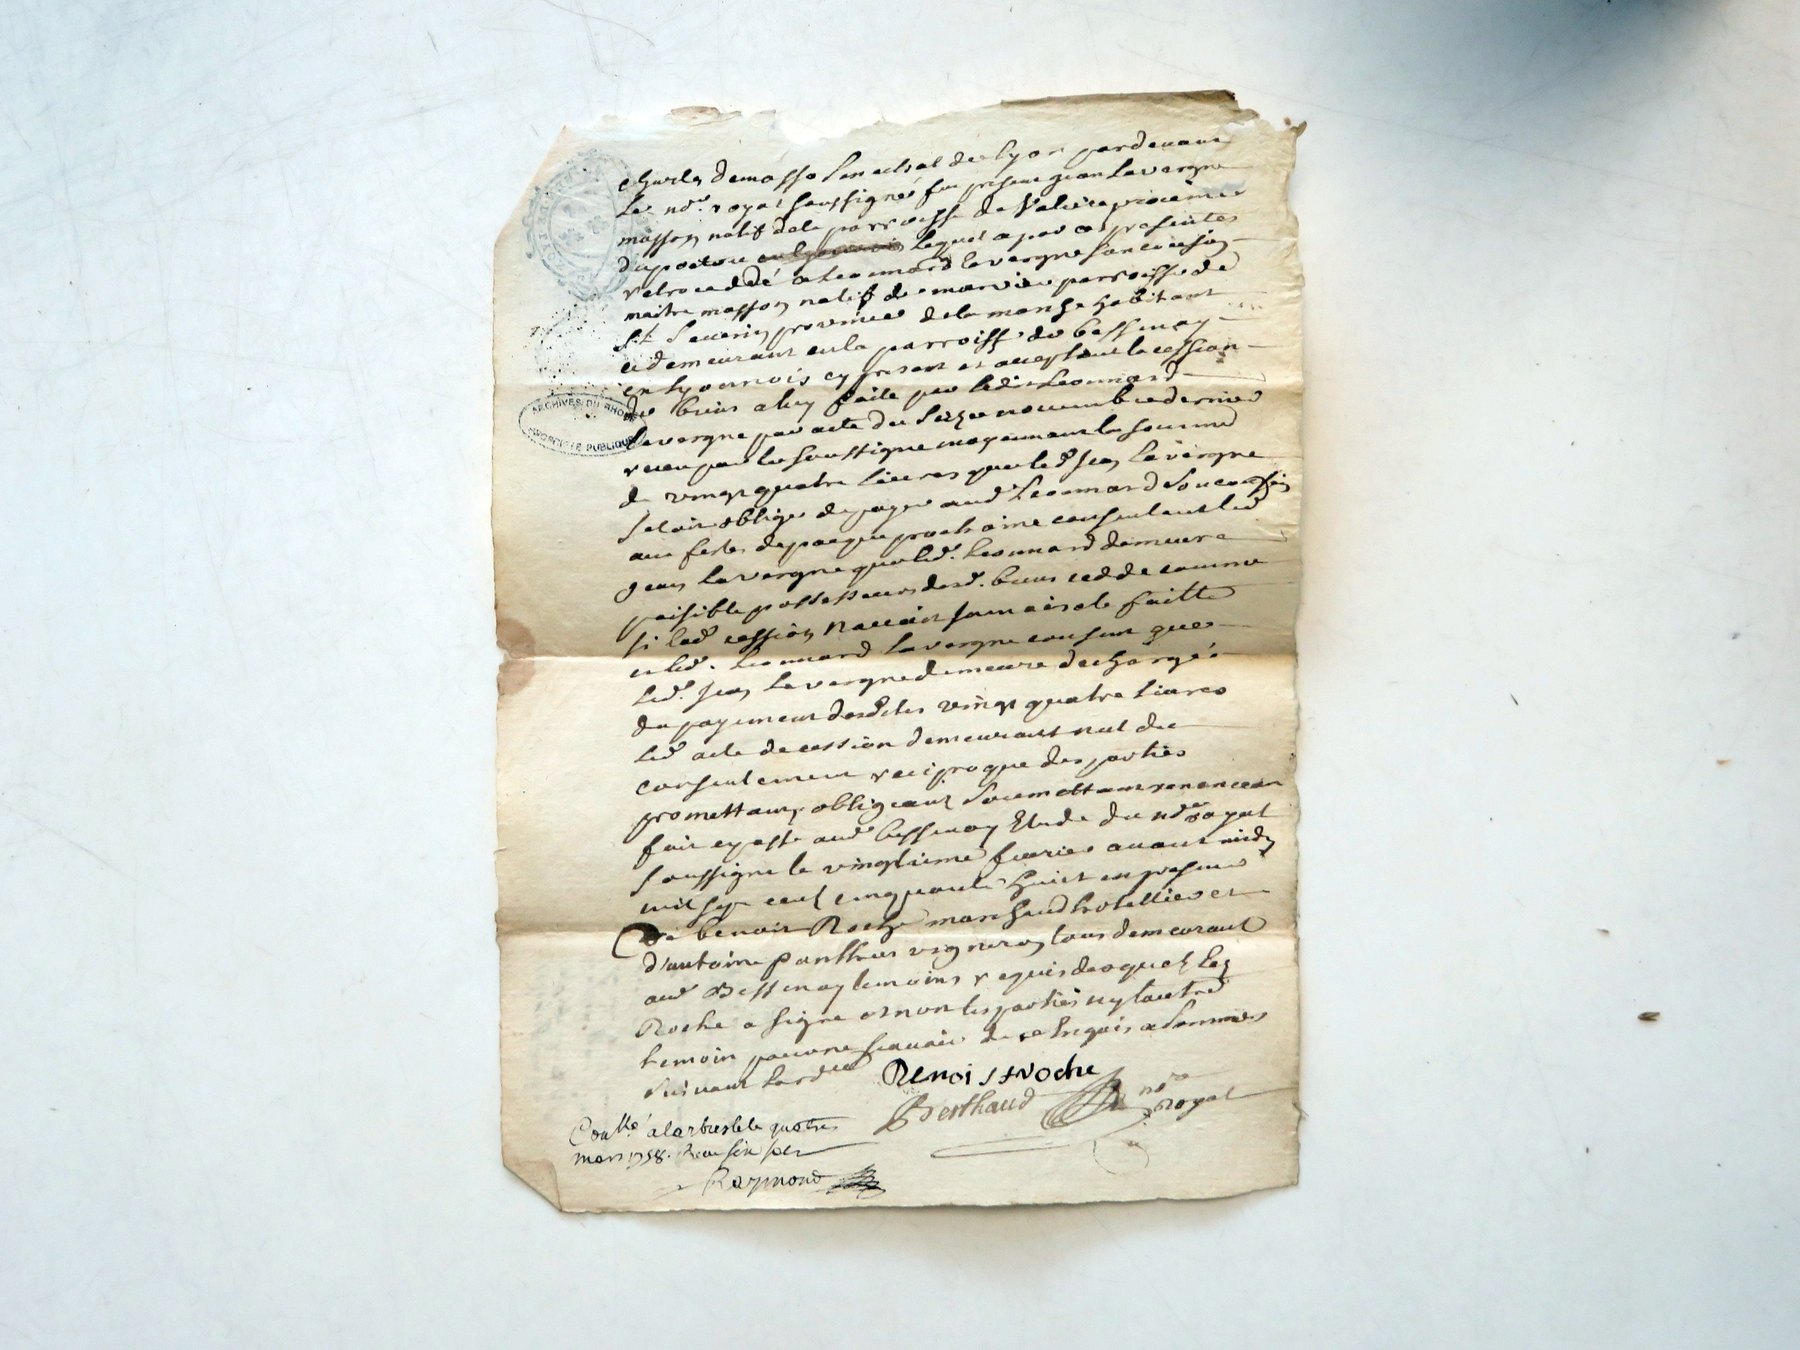 Charles demasso Senechal de Lyon pardevant
Le no.re royal soussigné fut present jean Lavergne
masson natif dela parroisse de province
du poitou lequel a par ces presentes
retrocedé a Leonnard lavergne son cousin
maitre masson natif de parroisse de
St. Severin province dela marche habitant
et demeurant en la parroisse de bessenay
en Lyonnois cy present et acceptant la cession
de biens a luy faite par ledit Leonnard
Lavergne par acte du Seize novembre dernier
receu par le soussigné moyennant la somme
de vingt quatre livres que led. Jean Lavergne
setoit obligé de payer aud. Leonnard Son cousin
aux festes de paque prochaine consentant led
jean Lavergne que led. Leonnard demeure
paisible possesseur desd. biens cedde comme
si lad. cession navoit jamais ete faitte
et led. Leonnard Lavergne consent que
Led. Jean Lavergne demeure dechargé
du payement desdites vingt quatre livres
Led. acte de cession demeurant nul du
consentement reciproque des parties
promettant obligeant Soumettant renonceant
fait et passé aud. bessenay Etude du no.re royal
Soussigné le vingtieme fevrier avant midy
mil sept cent cinquante huict en presence
De benoit Roche marchand hotellier et
d'antoine vigneron tous demeurant
aud Bessenay temoins requis desquels led
Roche a signé et non les parties ny lautre
temoin pour ne scavoir de ce enquis et Sommés
suivant lord.ce
Benoist Roche
Berthaud no.re
Royal
Con.llé a larbresle le quatre
mars 1758. Reçu six sols
Raymond
ARCHIVES DU RHONE
PROPRIETE PUBLIQUE